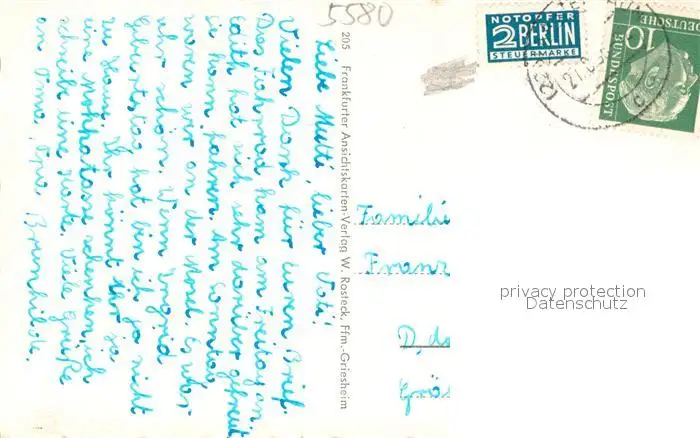 5580
NOTOPFER
2 BERLIN
STEUERMARKE
10
DEUTSCHE
BUNDESPOST
Liebe Mutti, lieber Vati!
Vielen Dank für euren Brief.
Das Fahrrad kam am Freitag an
Edith hat sich sehr darüber gefreut
sie kann fahren. Am Sonntag
waren wir an der Mosel. Es war
sehr schön. Wenn Ingrid
Geburtstag hat bin ich ja nicht
zu Haus. Ihr könnt ihr ja
eine schenken, ich
schreib eine Karte. Viele Grüße
an Oma, Opa. Brunhilde.
205 Frankfurter Ansichtskarten-Verlag W. Rosteck, Ffm.-Griesheim
Familie
Franz
privacy protection
Datenschutz